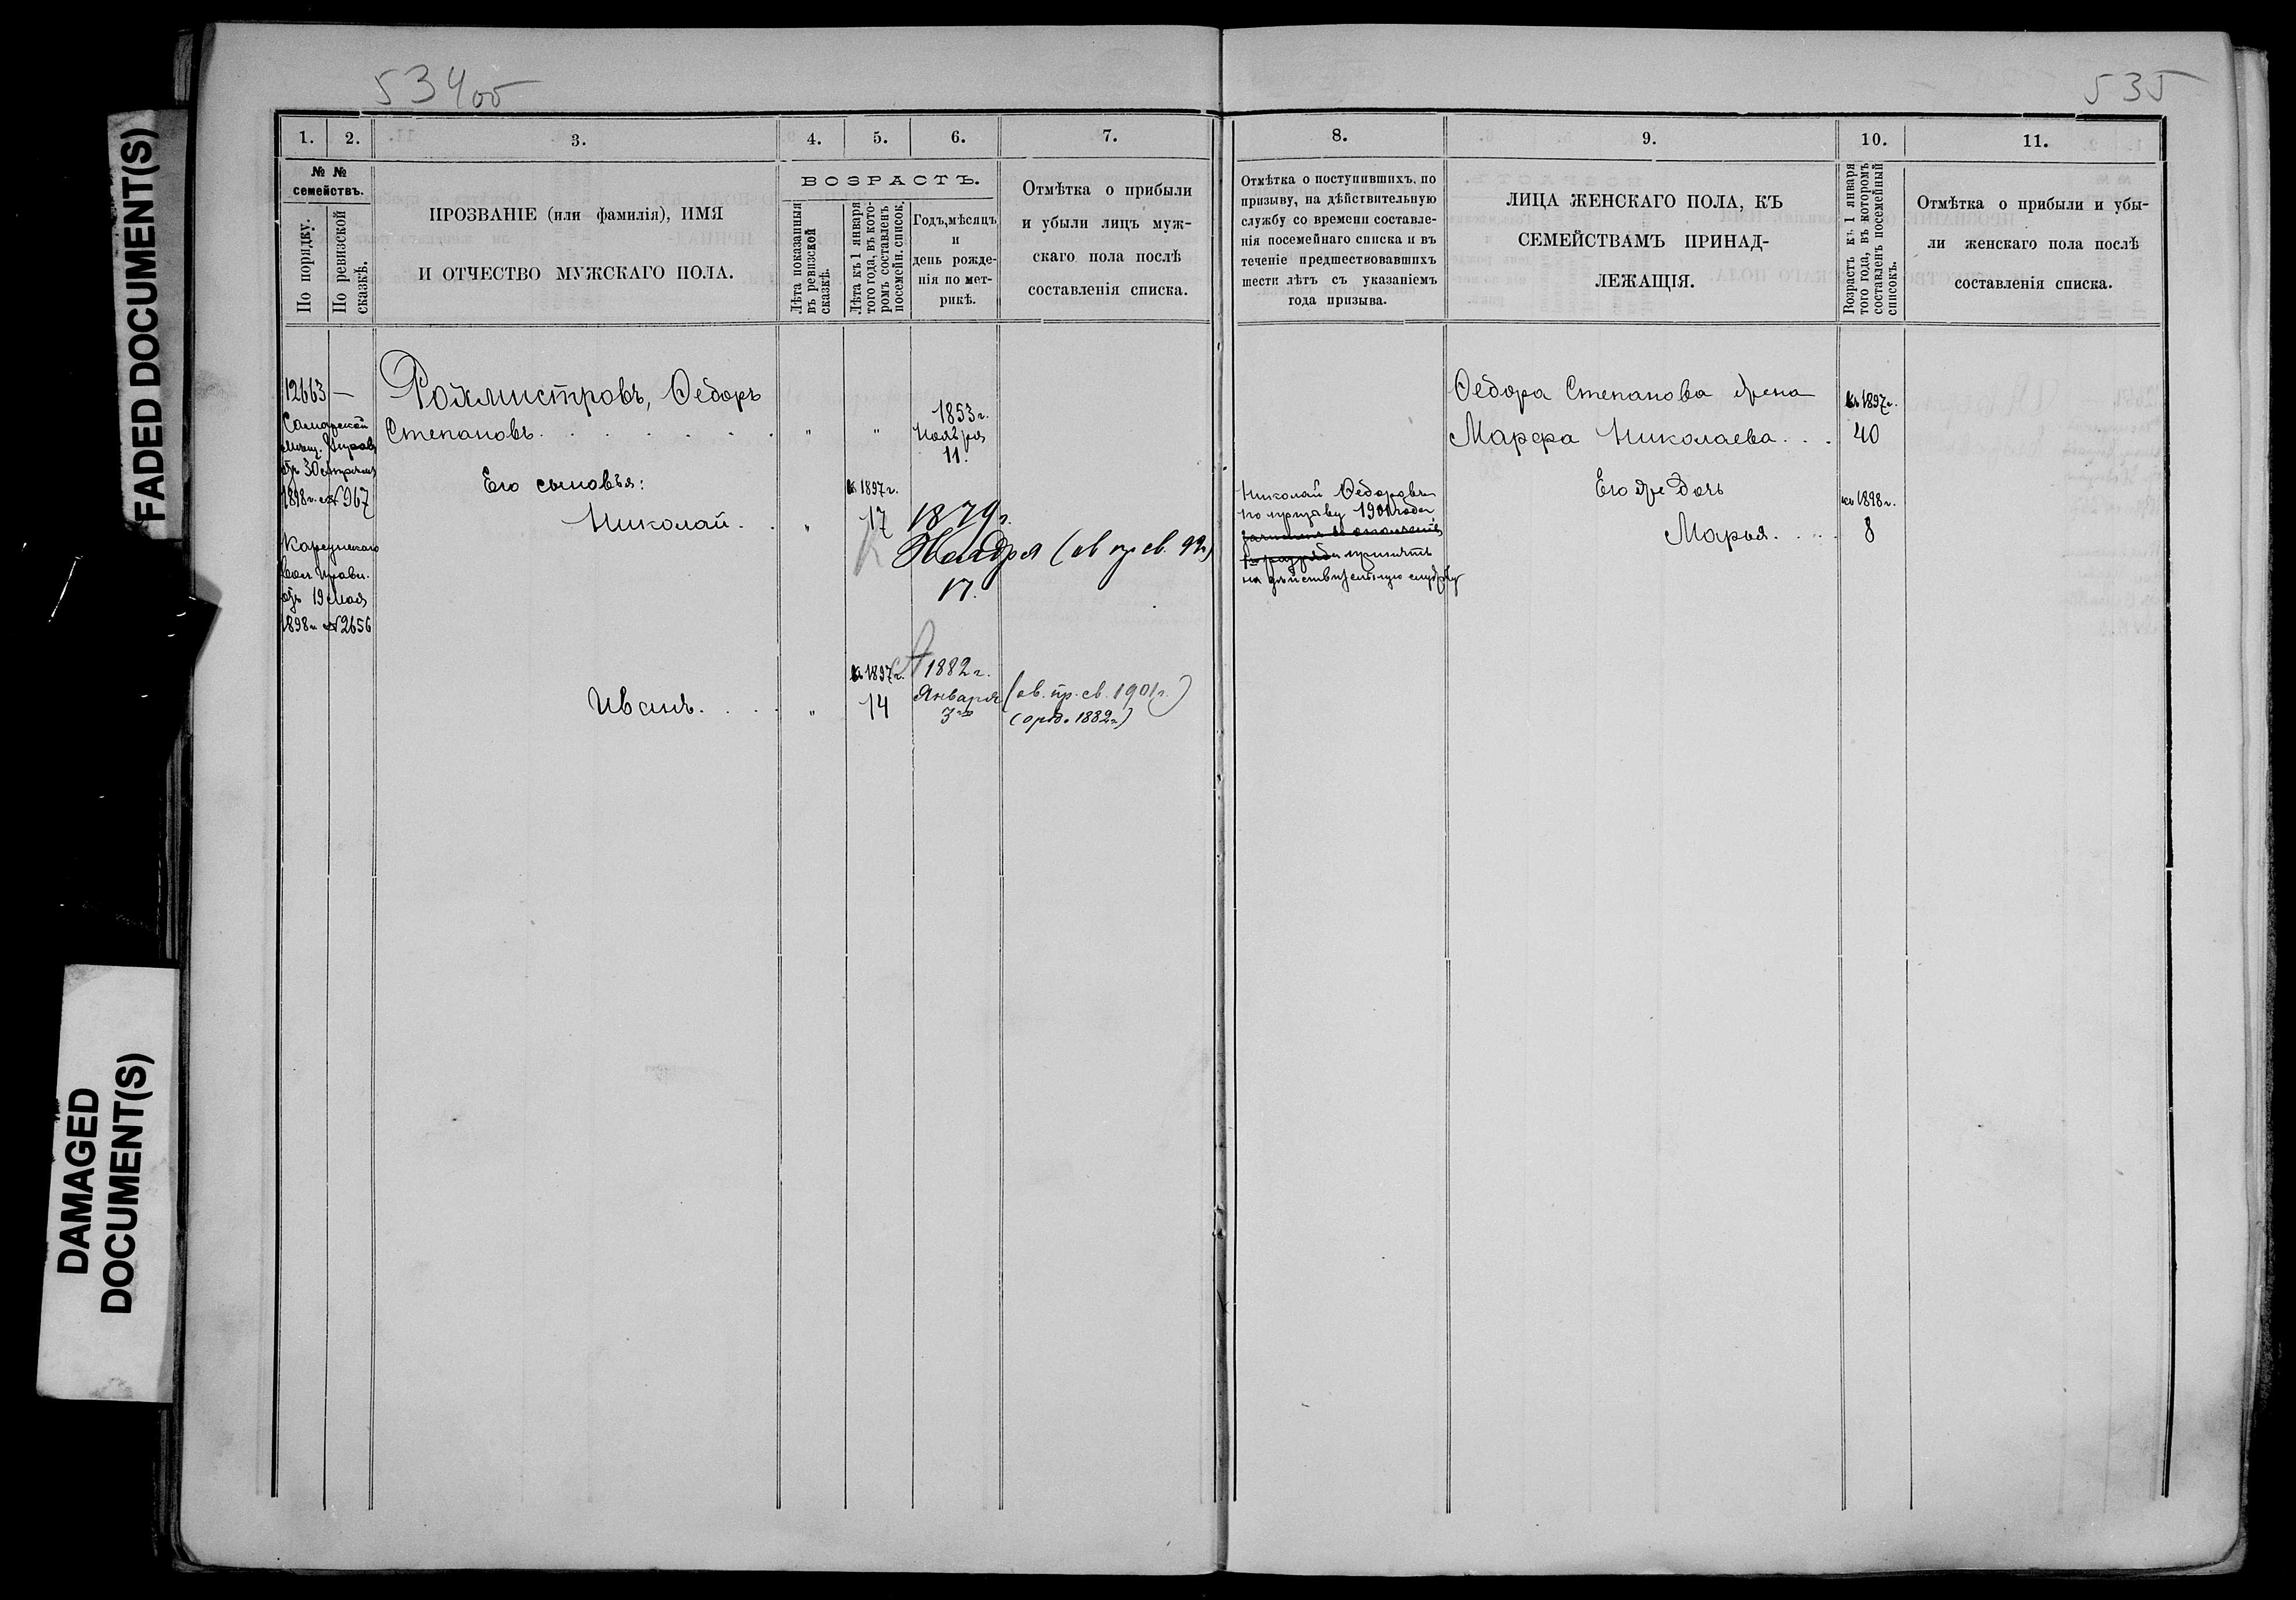 534 об
535
1. 2. 3. 4. 5. 6. 7. 8. 9. 10. 11.
№ № семействъ.
По порядку.
По ревизской сказкѣ.
ПРОЗВАНІЕ (или фамилія), ИМЯ
И ОТЧЕСТВО МУЖСКАГО ПОЛА.
ВОЗРАСТЪ.
Лѣта показанныя
въ ревизской
сказкѣ.
Лѣта къ 1 января
того года, въ кото-
ромъ составленъ
посемейн. список.
Годъ, мѣсяцъ
и
день рожде-
нія по мет-
рикѣ.
Отмѣтка о прибыли
и убыли лицъ муж-
скаго пола послѣ
составленія списка.
Отмѣтка о поступившихъ, по
призыву, на дѣйствительную
службу со времени составле-
нія посемейнаго списка и въ
теченіе предшествовавшихъ
шести лѣтъ съ указаніемъ
года призыва.
ЛИЦА ЖЕНСКАГО ПОЛА, КЪ
СЕМЕЙСТВАМЪ ПРИНАД-
ЛЕЖАЩІЯ.
Возрастъ къ 1 января
того года, въ которомъ
составленъ посемейный
списокъ.
Отмѣтка о прибыли и убы-
ли женскаго пола послѣ
составленія списка.
12663 —
Самарской
мѣщ. Управы
отъ 30 апрѣля
1898 г. № 967
вол. Правл.
отъ 19 Мая
1898 г. № 2656
Ѳедоръ
Степановъ . . . . . . " "
1853 г.
Ноября
11.
Его сыновья:
къ 1897 г.
Николай. . " 17
1879 г.
Ноября (ов. пр. св. 99 г)
17.
къ 1897 г. 1882 г.
Иванъ. . . . " 14
Января
3го
(ов. пр. св. 1901 г.)
1882 г.)
Николай Ѳедоровъ
по призыву 1901 года
принятъ
на дѣйствительную службу
Ѳедора Степанова жена
къ 1897 г.
Марѳа Николаева . . . 40
Его же дочь
къ 1898 г.
Марья. . . . 8
FADED DOCUMENT(S)
DAMAGED
DOCUMENT(S)